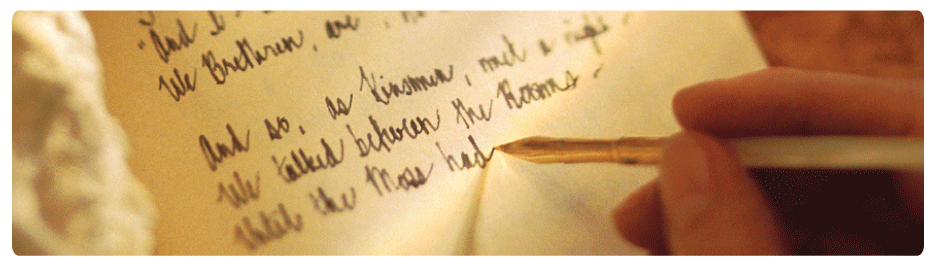 "And I
We Brethren, are
And so, as Kinsmen, met a night -
We talked between the Rooms -
Until the Moss had